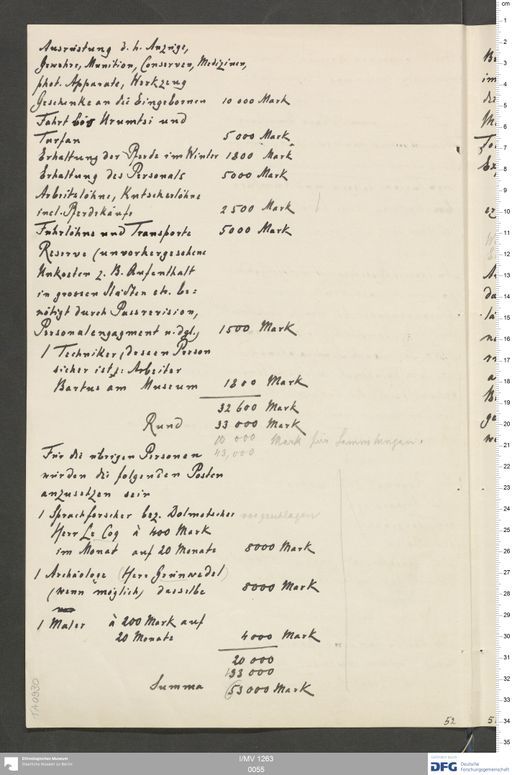 Ausrüstung d. h. Anzüge,
Gewehre, Munition, Conserven, Medizinen,
phot. Apparate, Werkzeug
Geschenke an die Eingebornen 10 000 Mark
Fahrt bis Urumtsi und
Turfan 5000 Mark
Erhaltung der Pferde im Winter 1800 Mark
Erhaltung des Personals 5000 Mark
Arbeitslöhne, Kutscherlöhne
incl. Pferdekäufe 2500 Mark
Fuhrlöhne und Transporte 5000 Mark
Reserve (unvorhergesehene
Unkosten z. B. Aufenthalt
in grossen Städten etc. be-
nötigt durch Passrevision,
Personalengagment u. dgl., 1500 Mark
1 Techniker, dessen Person
sicher ist: Arbeiter
Bartus am Museum 1800 Mark
32 600 Mark
Rund 33 000 Mark
10 000 Mark für Sammlungen.
43,000
Für die übrigen Personen
würden die folgenden Posten
anzusetzen sein
1 Sprachforscher bez. Dolmetscher vorgeschlagen
Herr Le Coq à 400 Mark
im Monat auf 20 Monate 8000 Mark
1 Archäologe (Herr Grünwedel)
(wenn möglich) dasselbe 8000 Mark
1 Maler à 200 Mark auf
20 Monate 4000 Mark
20 000
33 000
Summa 53 000 Mark
TA 0930
52
Ethnologisches Museum
Staatliche Museen zu Berlin
I/MV 1263
0055
DFG Deutsche
Forschungsgemeinschaft